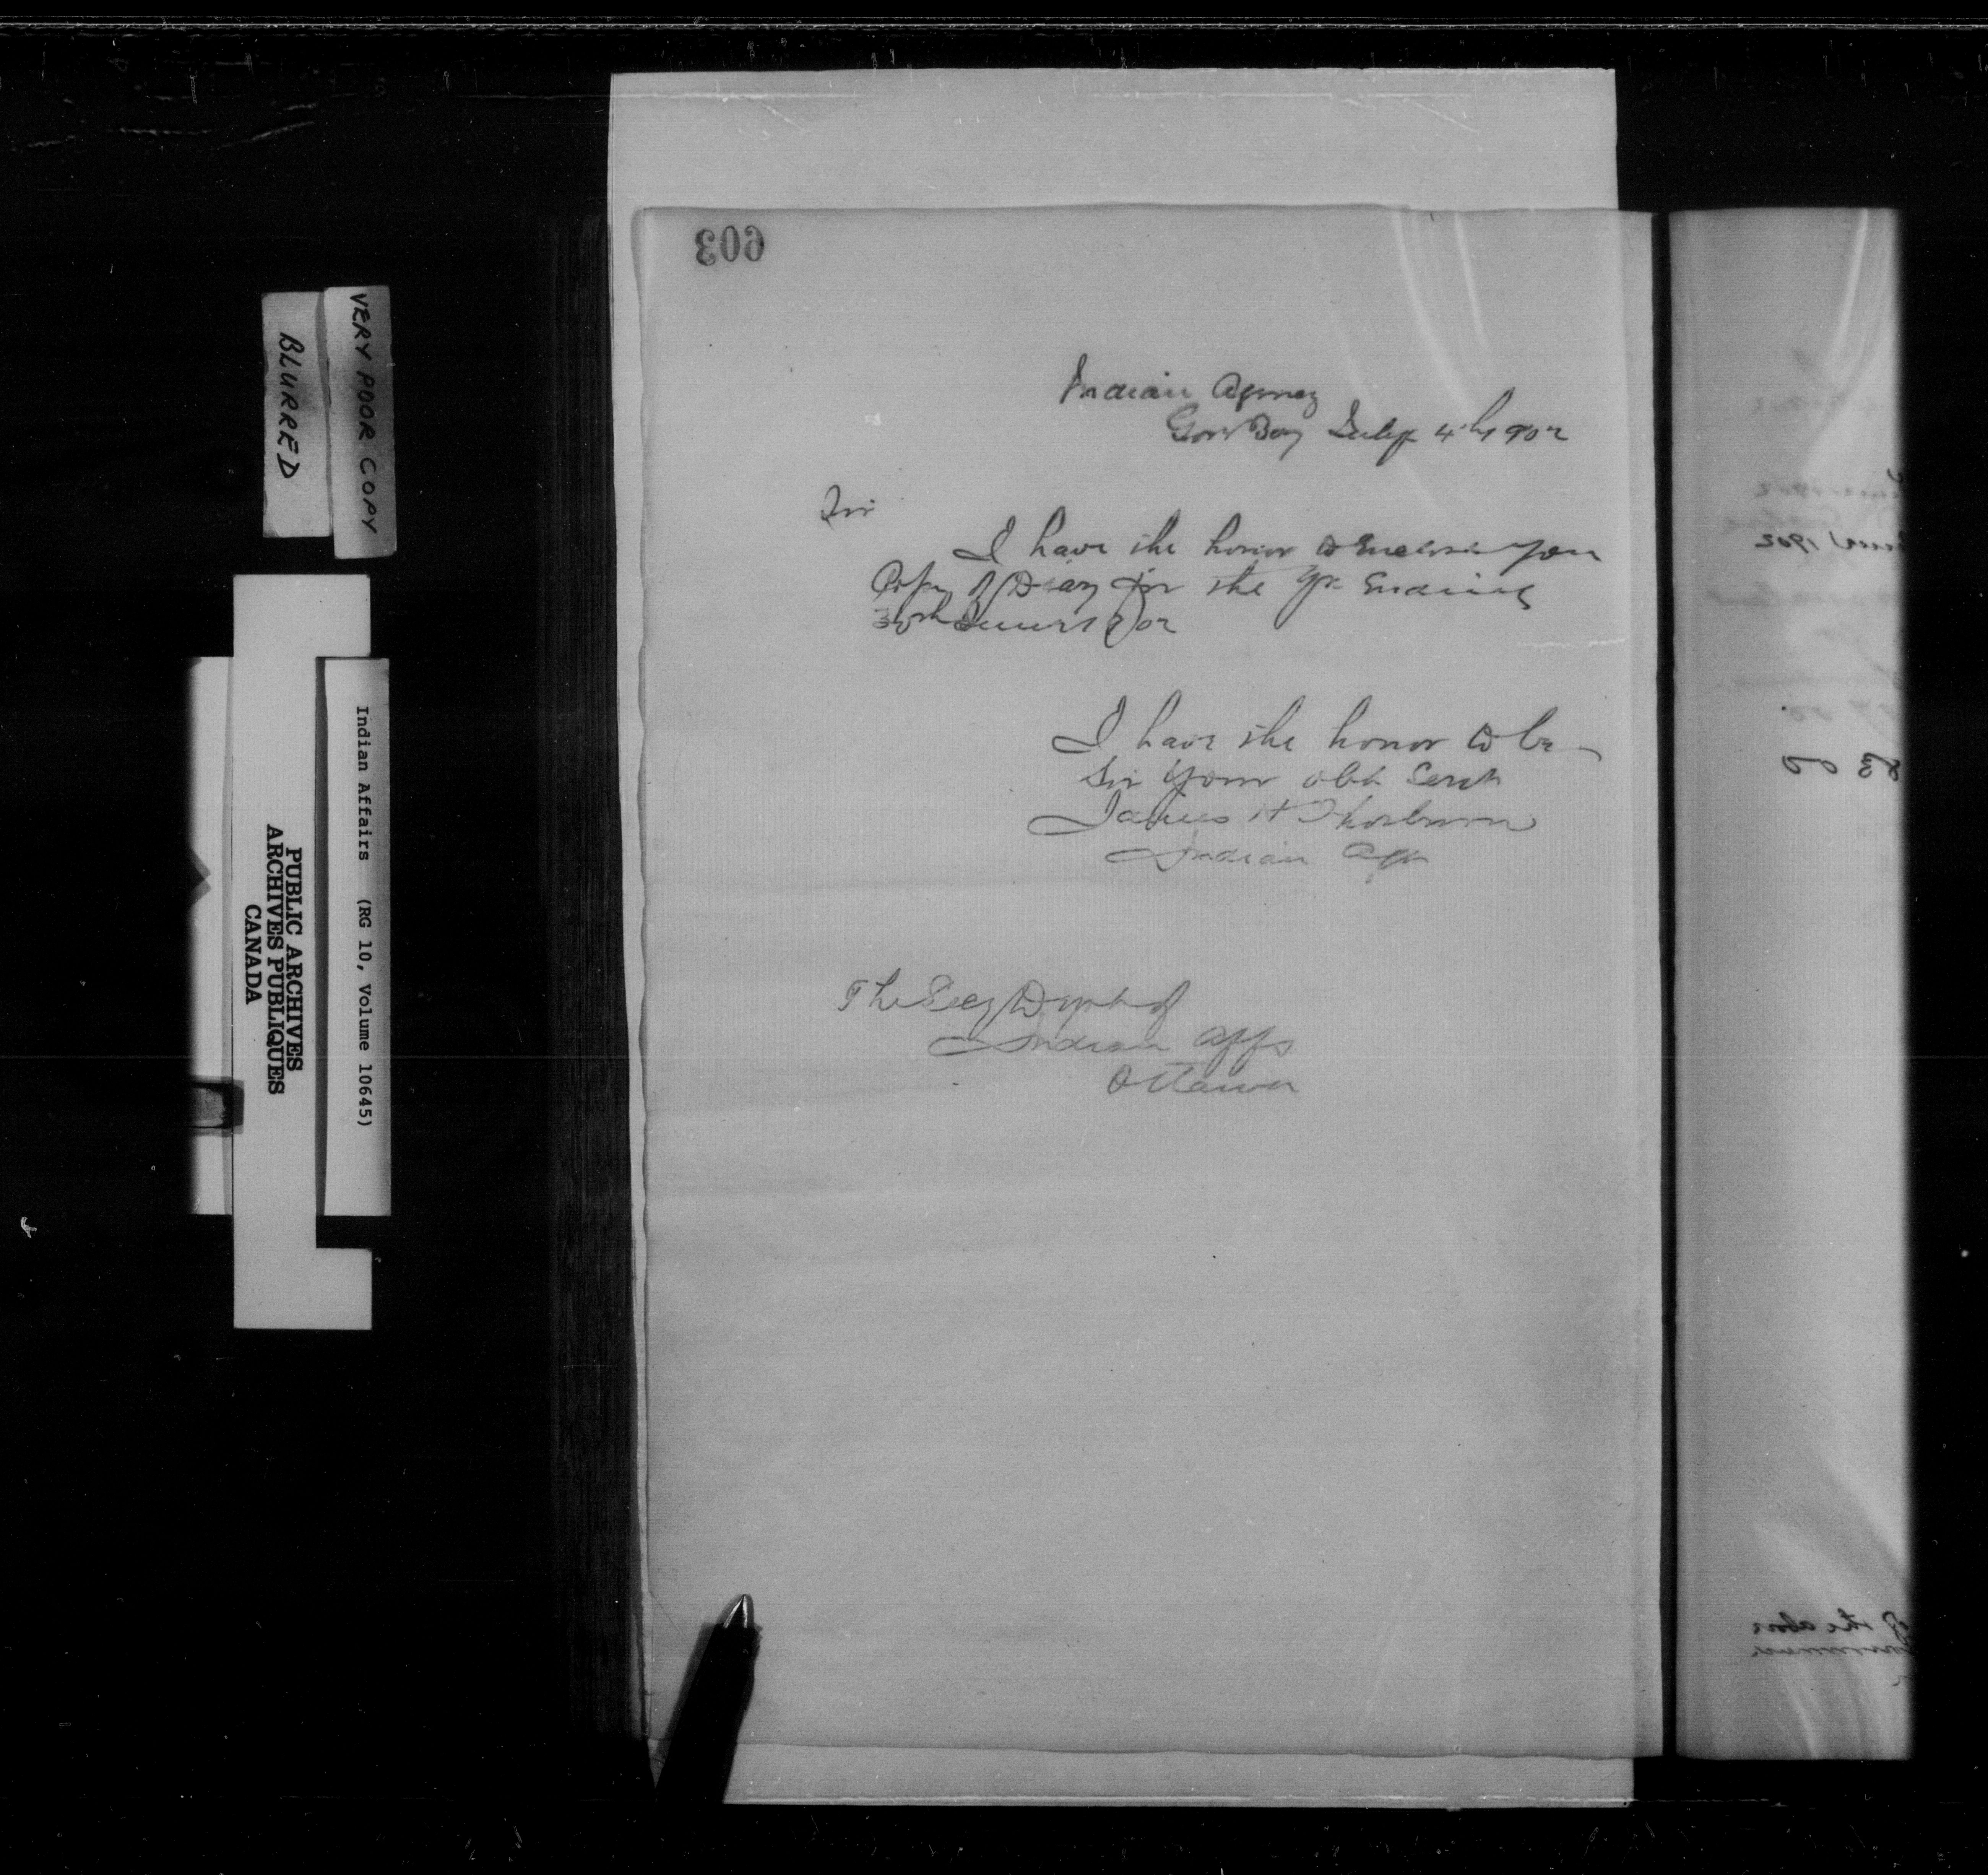 603
Indian Agency
Gore Bay July 4th 1902
Sir
I have the honor to enclose you
Copy of Diary for the yr Ending
30th June 1902
I have the honor to be
Sir Your obt Servt
James H Thorburn
Indian Agt
The Secy Dept of
Indian Affs
Ottawa
VERY POOR COPY
BLURRED
Indian Affairs (RG 10, Volume 10645)
PUBLIC ARCHIVES
ARCHIVES PUBLIQUES
CANADA
1902
of the above